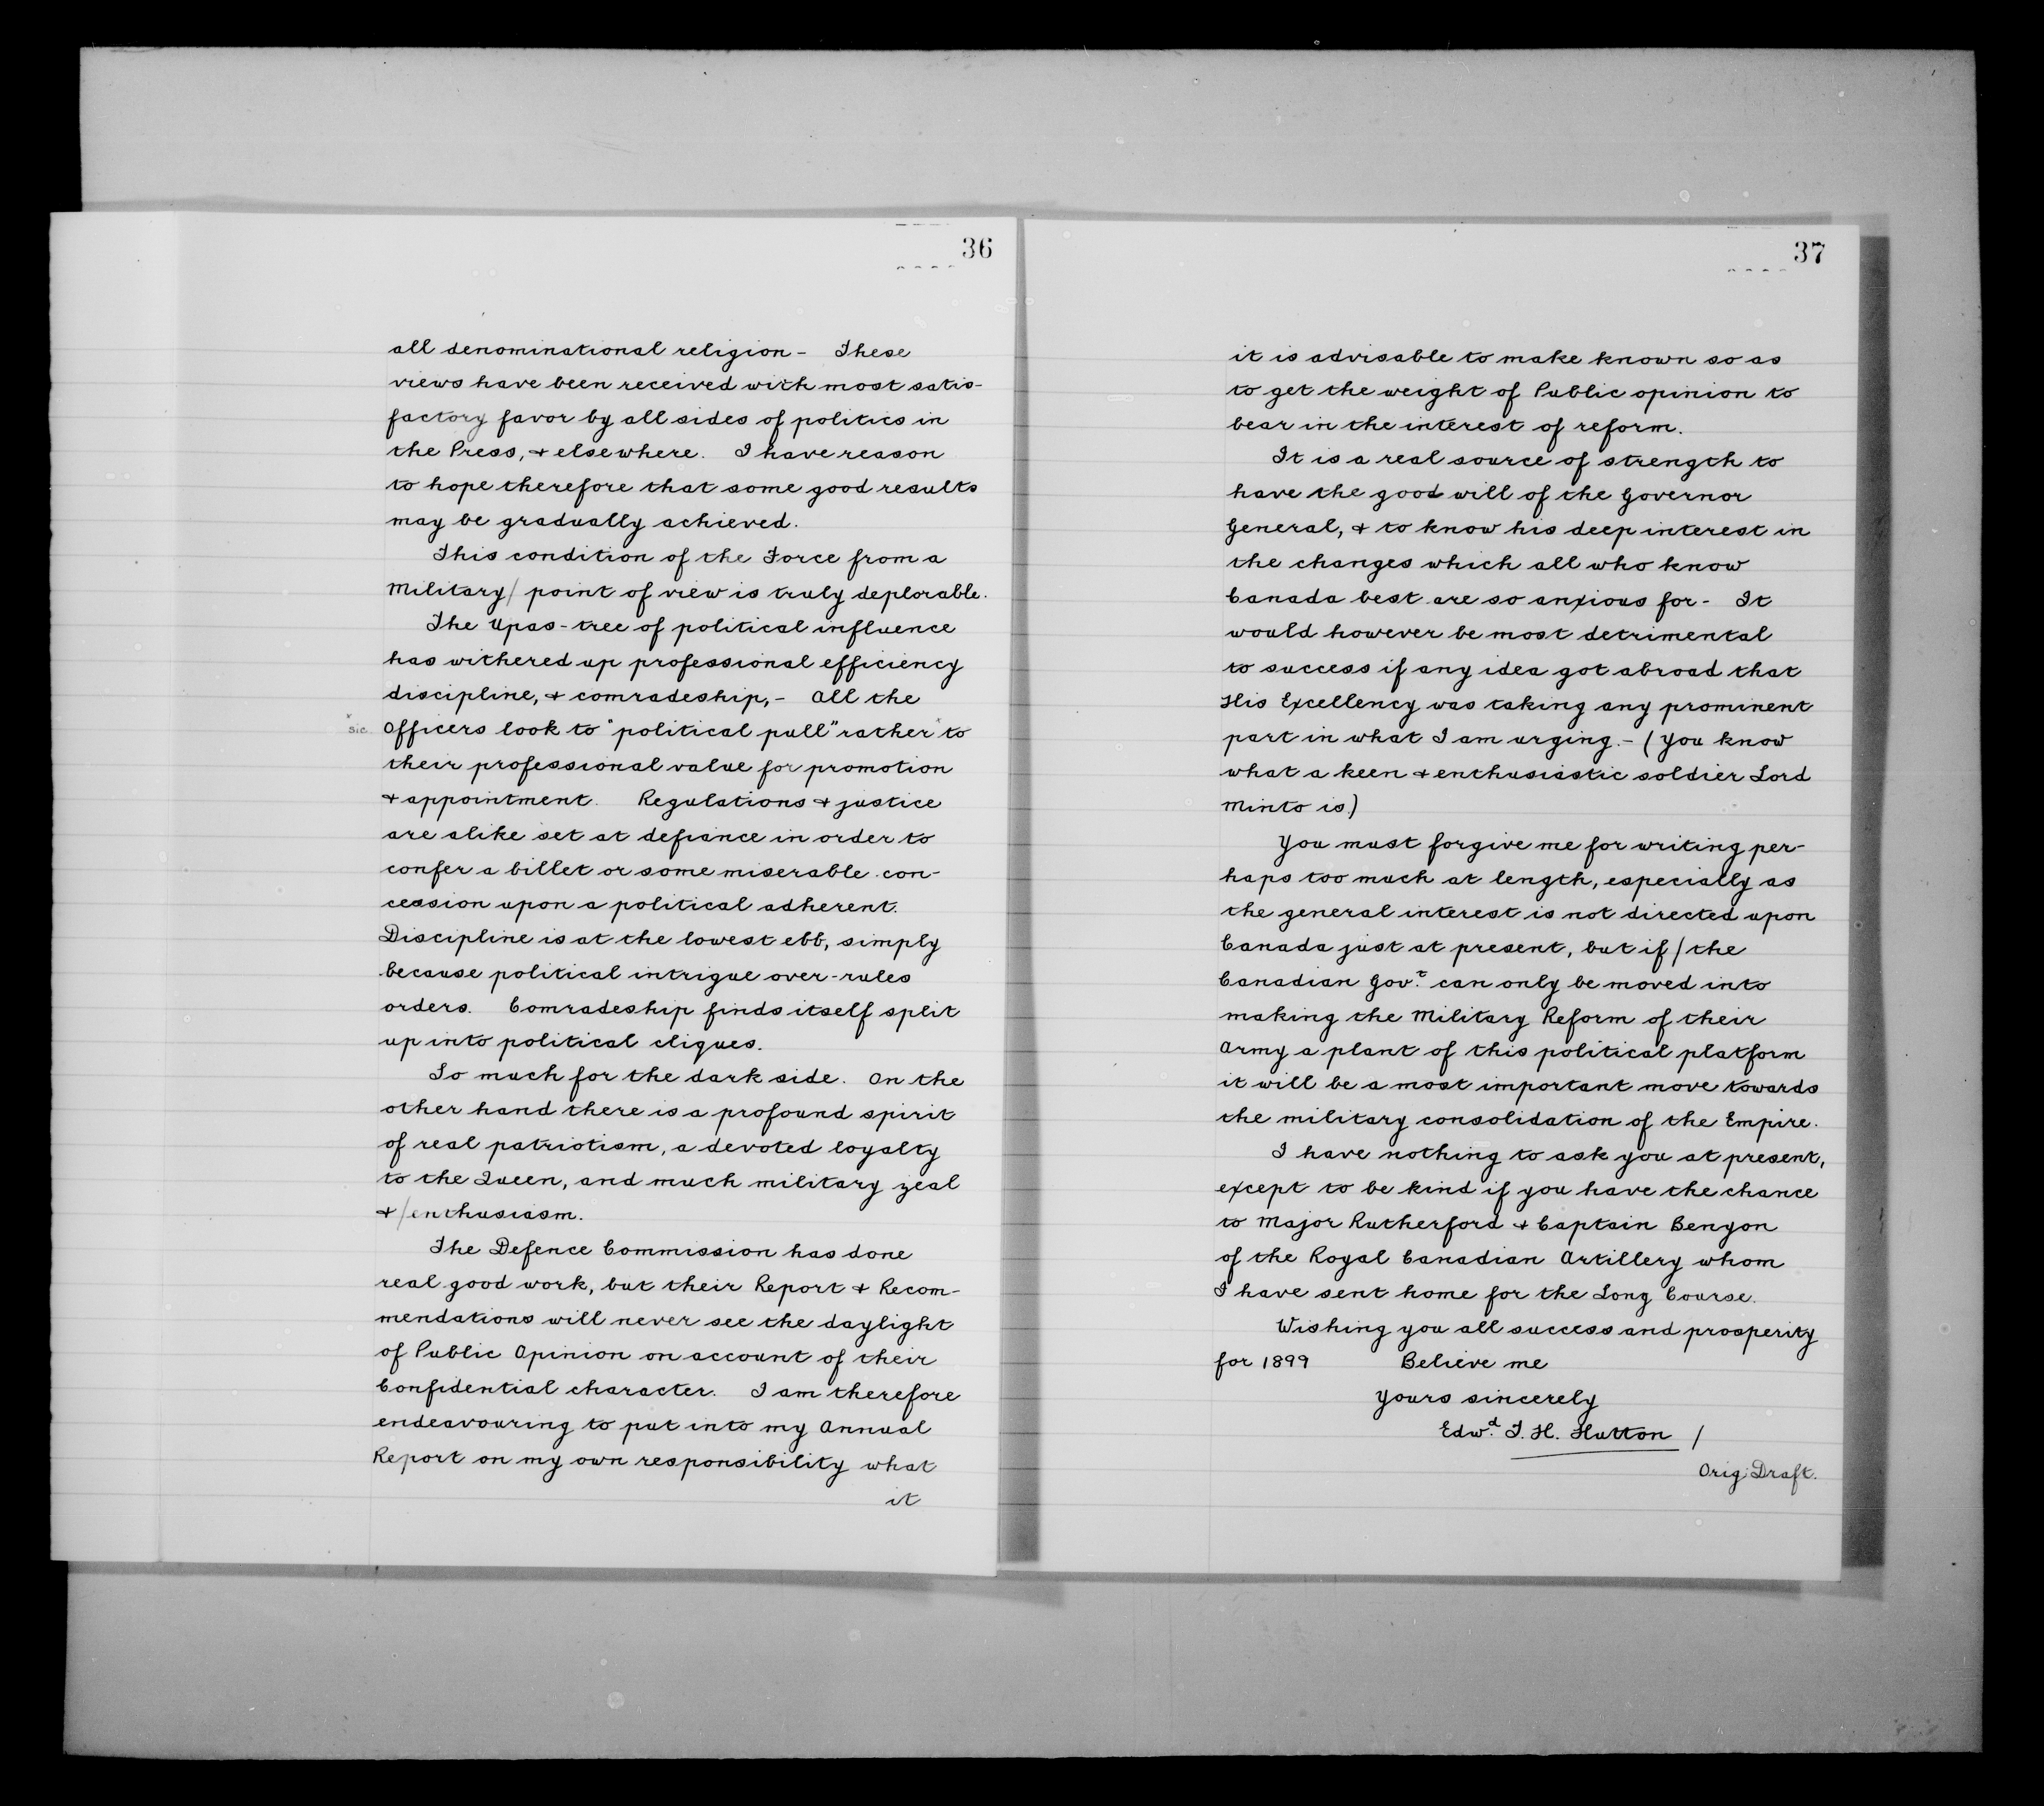 36
all denominational religion - These
views have been received with most satis-
factory favor by all sides of politics in
the Press, & elsewhere. I have reason
to hope therefore that some good results
may be gradually achieved.
This condition of the Force from a
Military/ point of view is truly deplorable.
The Upas-tree of political influence
has withered up professional efficiency
discipline, & comradeship,- All the
x
sic Officers look to "political pull" rather x to
their professional value for promotion
& appointment. Regulations & justice
are alike set at defiance in order to
confer a billet or some miserable con-
cession upon a political adherent.
Discipline is at the lowest ebb, simply
because political intrigue over-rules
orders. Comradeship finds itself split
up into political cliques.
So much for the dark side. On the
other hand there is a profound spirit
of real patriotism, a devoted loyalty
to the Queen, and much military zeal
& /enthusiasm.
The Defence Commission has done
real good work, but their Report & Recom-
mendations will never see the daylight
of Public Opinion on account of their
Confidential character. I am therefore
endeavouring to put into my Annual
Report on my own responsibility what
it
37
it is advisable to make known so as
to get the weight of Public opinion to
bear in the interest of reform.
It is a real source of strength to
have the good will of the Governor
General, & to know his deep interest in
the changes which all who know
Canada best are so anxious for - It
would however be most detrimental
to success if any idea got abroad that
His Excellency was taking any prominent
part in what I am urging. - (You know
what a keen & enthusiastic soldier Lord
Minto is)
You must forgive me for writing per-
haps too much at length, especially as
the general interest is not directed upon
Canada just at present, but if / the
Canadian Govt. can only be moved into
making the Military Reform of their
Army a plant of this political platform
it will be a most important move towards
the military consolidation of the Empire.
I have nothing to ask you at present,
except to be kind if you have the chance
to Major Rutherford & Captain Benyon
of the Royal Canadian Artillery whom
I have sent home for the Long Course.
Wishing you all success and prosperity
for 1899 Believe me
Yours sincerely
Edwd. T. H. Hutton /
Orig: Draft.